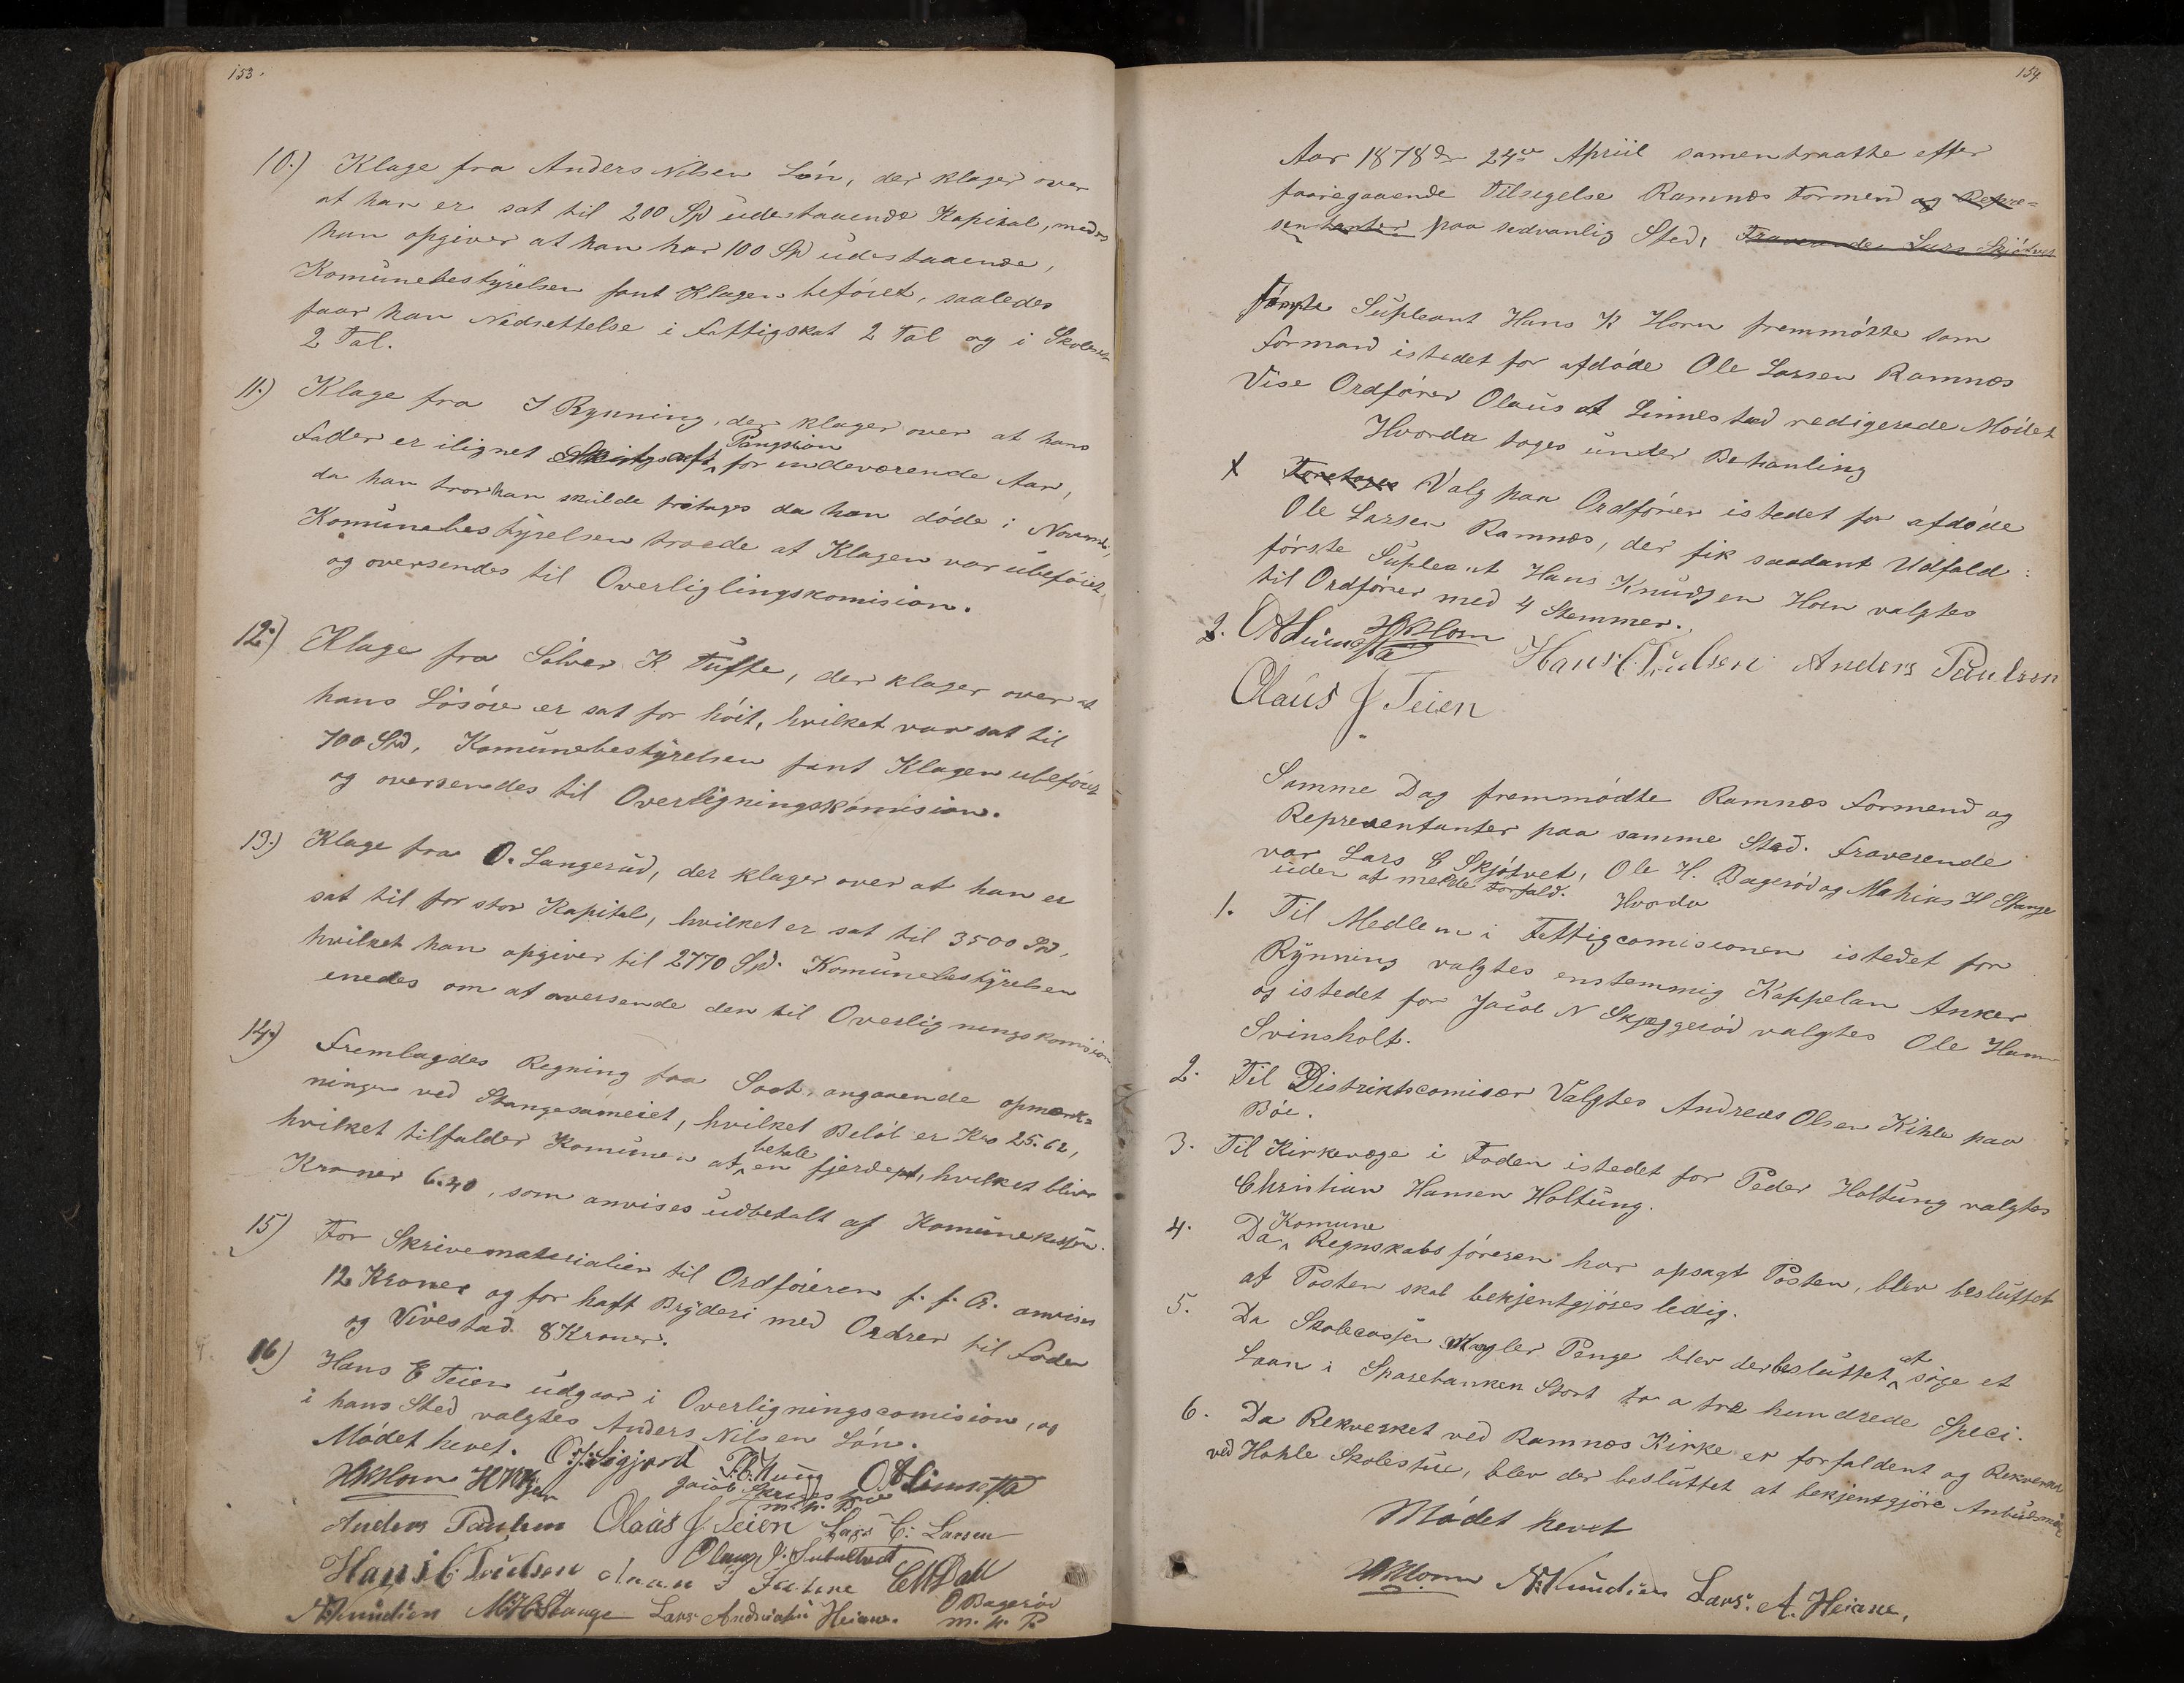 153.
10.) Klage fra Anders Nilsen Lón, der klager over
at han er sat til 200 Spd udestaaende Kapital, medes
han opgiver at han har 100 Spd udestaaende,
Komunebestyrelsen fant Klagen beföiet, saaledes
faar han Nedsettelse i Fattigskat 2 Tal og i Skoleskat
2 Tal.
11.) Klage fra I Rynning, der klager over at hans
Fader er ilignet Pangsion for indeværende Aar,
da han tror han skulde fritages da han döde i Novemb,
Komunebestyrelsen troede at Klagen var ubeföiet
og oversendes til Overliglingskomision.
12.) Klage fra Sölver K. Tufte, der klager over at
hans Lösöre er sat for höit, hvilket var sat til
700 Spd, Komunebestyrelsen fant Klagen ubeföiet
og oversendes til Overligningskomision.
13.) Klage fra O. Langerud, der klager over at han er
sat til for stor Kapital, hvilket er sat til 3500 Spd,
hvilket han opgiver til 2770 Spd. Komunebestyrelsen
enedes om at oversende den til Overligningskomision
14.) Fremlagdes Regning fra Soot, angaaende opmærk=
ningen ved Stangesameiet, hvilket Belöb er Kro 25.62,
hvilket tilfalder Komunen at betale en fjerdept, hvilket bliver
Kroner 6.40, som anvises udbetalt af Komunekassen.
15) For Skrivematerialier til Ordföreren f. f. A. anvises
12 Kroner og for haft Bryderi med Ordrer til Foden
og Vivestad 8 Kroner.
16) Hans E Teien udgaar i Overligningscomision, og
i hans Sted valgtes Anders Nilsen Lón.
Mödet hevet.
HKHorn
Anders Paulsen Olaus J Teien Lars C. Larsen
Hans C. Trulsen
N. Knudsen M. H. Stange Lars Andreasen Heiane. O Bageröd
m. p. P.
154.
Aar 1878 den 24de April samentraatte efter
faaregaaende Tilsigelse Ramnæs Formend og Repre=
sentanter paa sedvanlig Sted, Fraverende Lars Skjötvet
förste Supleant Hans K Horn fremmötte som
Formand istedet for afdöde Ole Larsen Ramnæs
Vise Ordförer Olaus A Linnestad redigerede Mödet
Hvorda toges under Behanling
X Foretages Valg paa Ordförer istedet for afdöde
Ole Larsen Ramnæs, der fik saadant Udfald:
förste Supleant Hans Knudsen Horn valgtes
til Ordförer med 4 Stemmer.
2. OALinnesta HKHorn Hans C. Trulsen Anders Paulsen
Olaus J Teien
Samme Dag fremmödte Ramnæs Formend og
Representanter paa samme Sted. Fraverende
var Lars C Skjötvet, Ole H. Bageröd og Mahias H Stange
uden at melde Forfald. Hvorda
1. Til Medlem i Fattigcomisionen istedet for
Rynning valgtes enstemmig Kappelan Anker
og istedet for Jacob N Skjæggeröd valgtes Ole Ham
Svinsholt.
2. Til Distriktscomisær Valgtes Andreas Olsen Kihle paa
Böe.
3. Til Kirkeværge i Foden istedet for Peder Holtung valgtes
Christian Hansen Holtung.
4. Da Komune Regnskabsföreren har opsagt Posten, blev besluttet
at Posten skal bekjentgjöres ledig.
5. Da Skolecassen Mangler Penge blev der besluttet at söge et
Laan i Sparebanken Stort to a tre hundrede Speci.
6. Da Rekverket ved Ramnæs Kirke er forfaldent og Rekverket
ved Hohle Skolestue, blev der besluttet at bekjentgjöre Anbudsmöde
Mödet hevet
HKHorn N. Knudsen Lars. A. Heiane,